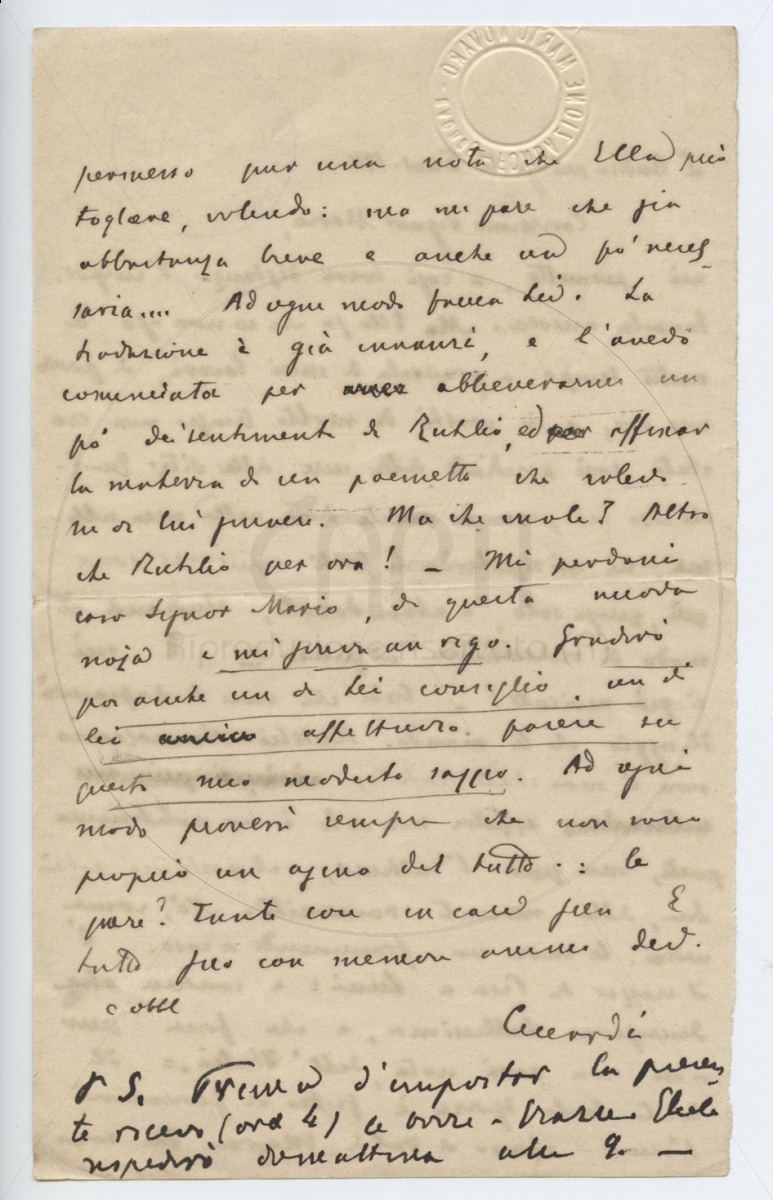 permesso pur una nota che Ella può
togliere, volendo: ma mi pare che sia
abbastanza breve e anche un pó neces-
saria.... Ad ogni modo faccia Lei. La
traduzione è già innanzi, e l'avevo
cominciata per abbeverarmi un
pó dei sentimenti di Rutilio, ed affinar
la materia di un poemetto che volevo
su di lui finire. Ma che vuole? Altro
che Rutilio per ora! – Mi perdoni
caro Signor Mario, di questa nuova
noja e mi scriva un rigo. Gradirò
poi anche un di Lei consiglio, un di
lei affettuoso parere su
questo mio modesto saggio. Ad ogni
modo proverà sempre che non sono
proprio un asino del tutto.: le
pare? Tante cose in casa sua E
tutto suo con memore animo dev.
e obbl
Ceccardi
P S. Prima d'impostar la presen
te ricevo (ore 4) le bozze – Grazie Gliele
rispedirò domattina alle 9. –